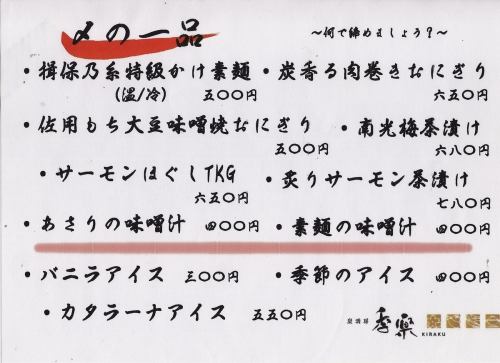 〆の一品 ～何で締めましょう？～
・揖保乃糸特級かけ素麺 ・炭香る肉巻きおにぎり
(温/冷) 五〇〇円 六五〇円
・佐用もち大豆味噌焼おにぎり ・南光梅茶漬け
五〇〇円 六八〇円
・サーモンほぐしTKG ・炙りサーモン茶漬け
六五〇円 七八〇円
・あさりの味噌汁 四〇〇円 ・素麺の味噌汁 四〇〇円
・バニラアイス 三〇〇円 ・季節のアイス 四〇〇円
・カタラーナアイス 五五〇円
季樂 KIRAKU